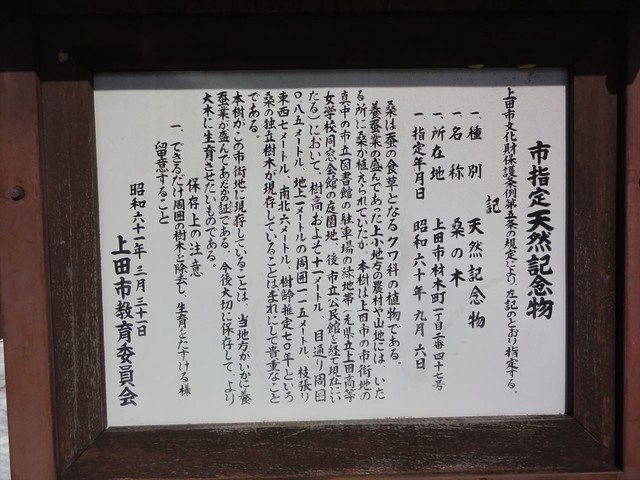 市指定天然記念物
上田市文化財保護条例第五条の規定により、左記のとおり指定する。
記
一、種別 天然記念物
一、名称 桑の木
一、所在地 上田市材木町一丁目二番四十七号
一、指定年月日 昭和六十年九月六日
桑は蚕の食草となるクワ科の植物である。
養蚕業の盛んであった上小地方の農村や山地には、いた
る所に桑が植えられていたが、本樹は上田市の市街地の
真中の市立図書館の駐車場の緑地帯(元県立上田高等
女学校同窓会館の庭園地、後市立公民館を経て現在にい
たる)において、樹高およそ十一メートル、目通り周囲
〇・八五メートル、地上一メートルの周囲一・一五メートル、枝張り
東西七メートル、南北六メートル、樹齢推定七〇年という
桑の独立樹木が現存していることはまれにして貴重なこと
である。
本樹がこの市街地に現存していることは、当地方がいかに養
蚕業が盛んであったかの証である。今後大切に保存して、より
大木に生育させたいものである。
保存上の注意
一、できるだけ周囲の樹木を除去し、生育をたすける様
留意すること
昭和六十一年三月三十一日
上田市教育委員会